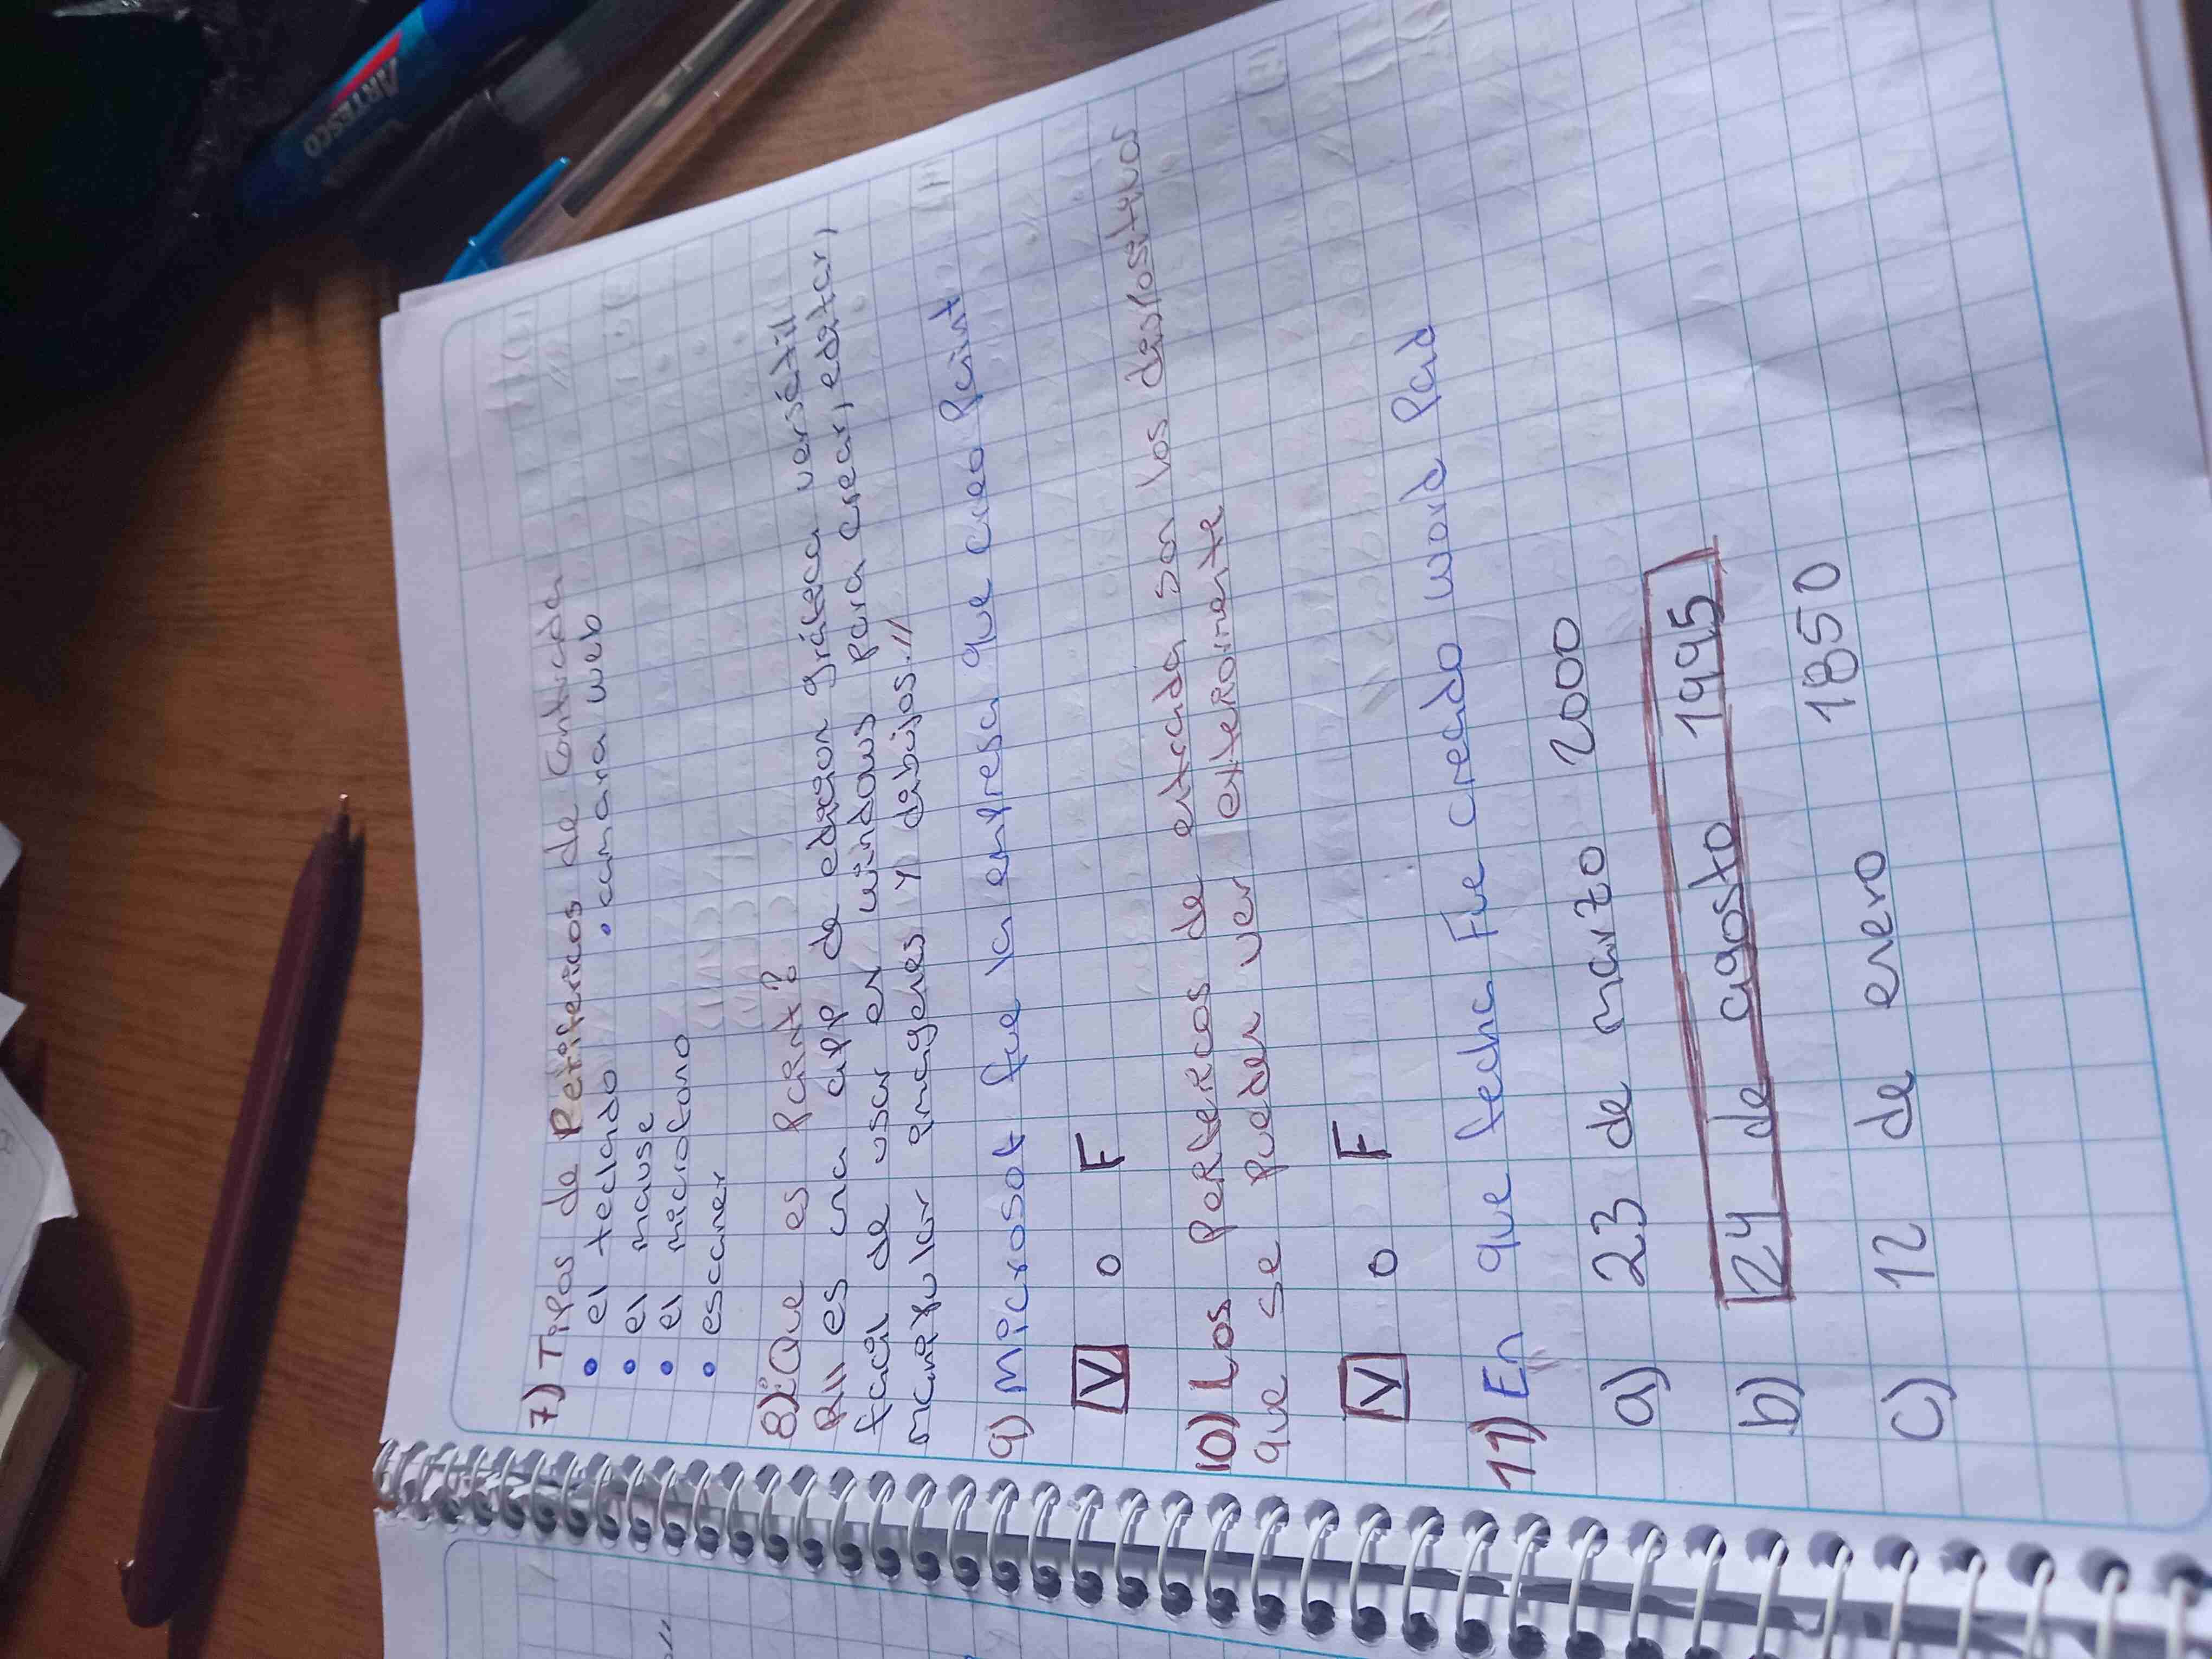 ARTESCO
7) Tipos de Periféricos de Contrada
• el teclado • camara web
• el mause
• el microfono
• escaner
8) ¿Que es paint?
R// es una app de edición gráfica versátill
fácil de usar en windows para crear, editar,
manipular imagenes y dibujos.//
9) Microsoft fue la empresa que creo Paint
V o F
10) Los perifericos de entrada son los dispositivos
que se pueden ver exteriormente
V o F
11) En que fecha Fue creado word Pad
a) 23 de marzo 2000
b) 24 de agosto 1995
c) 12 de enero 1850